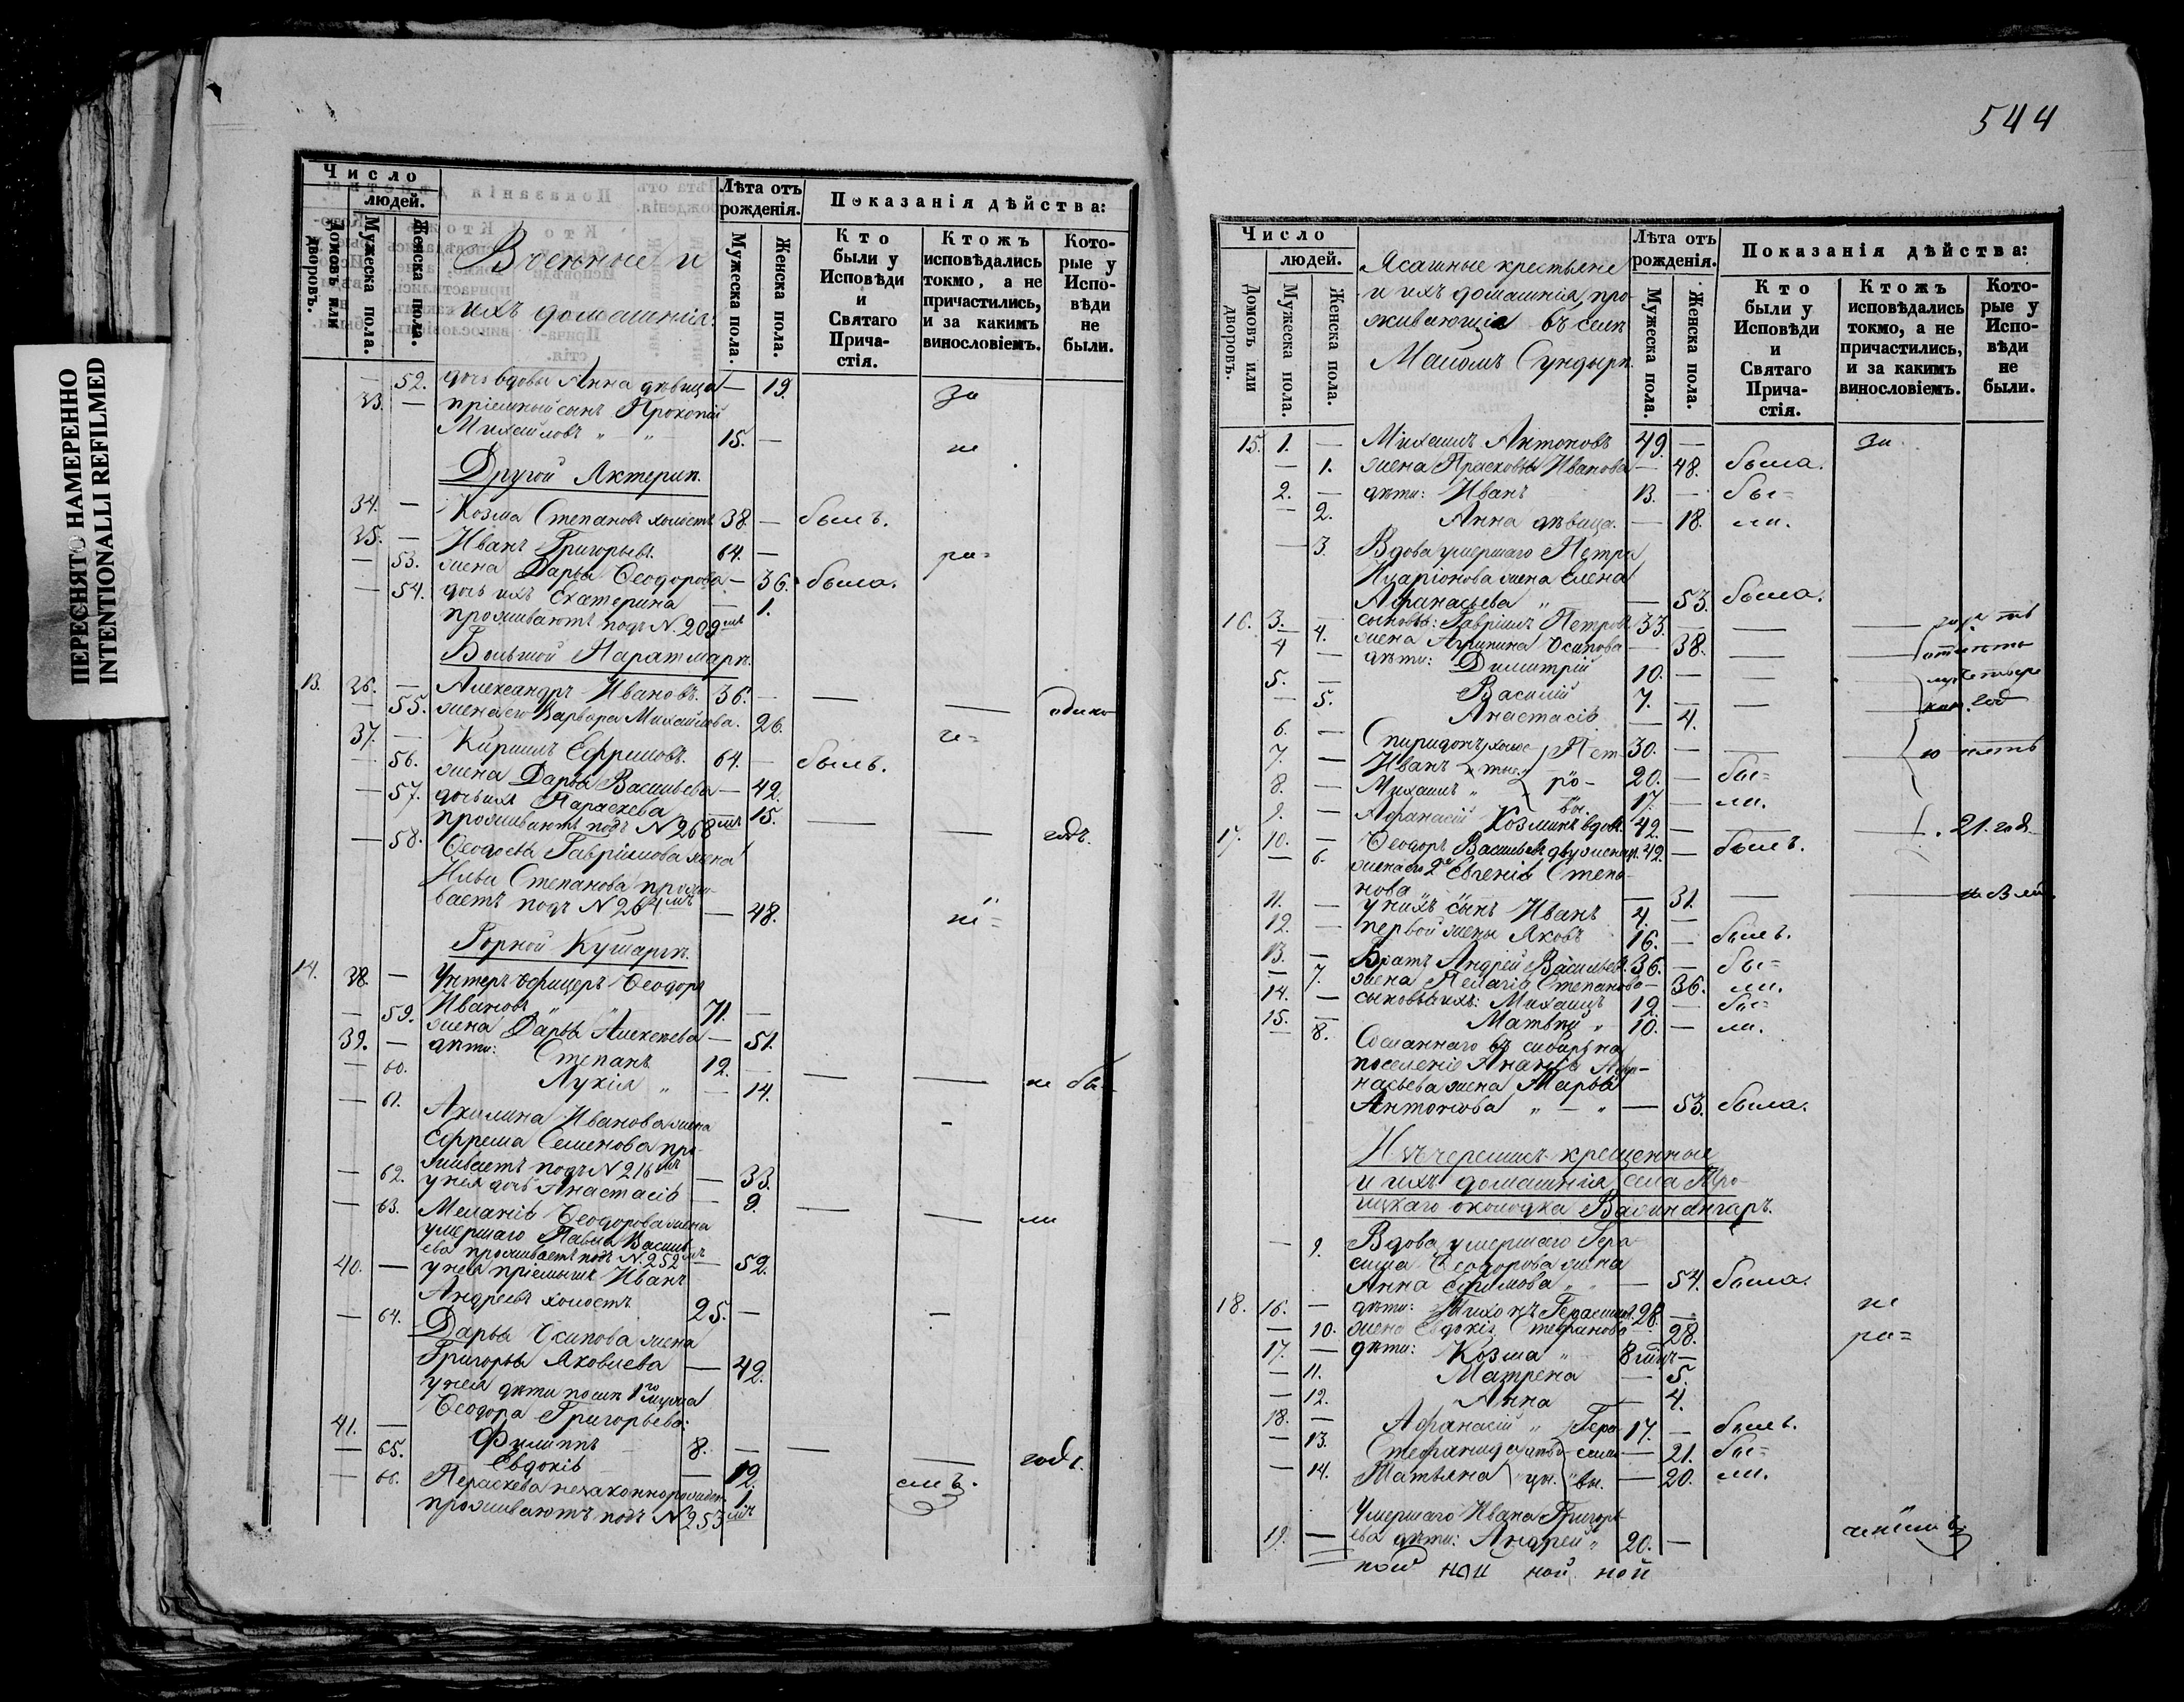 ПЕРЕСНЯТО НАМЕРЕННО
INTENTIONALLI REFILMED
Число
людей.
Домовъ или дворовъ.
Мужеска пола.
Женска пола.
Военные и
ихъ домашнія:
Лѣта отъ рожденія.
Мужеска пола.
Женска пола.
Показанія дѣйства:
Кто были у Исповѣди и Святаго Прича-стія.
Ктожъ исповѣдались токмо, а не причастились, и за какимъ винословіемъ.
Кото-рые у Испо-вѣди не были.
— 52. дочь вдова Анна дѣвица — 19.
33. — пріемный сынъ Прокопій
Михайловъ " " 15. —
Другой Актерик.
34. — Козма Степановъ холостъ 38. — былъ.
35. — Иванъ Григорьевъ 64. —
— 53. жена Дарья Ѳеодорова — 36. была.
— 54. дочь ихъ Екатерина — 1.
проживаютъ подъ N. 209мъ
Большой Паратмарѣ.
13. 36. — Александръ Ивановъ. 36. — —
— 55. жена его Варвара Михайлова. 26. —
37. — Кириллъ Ефремовъ. 64. — былъ.
— 56. жена Дарья Васильева — 42.
— 57. дочь ихъ Параскева 15. — — годъ.
проживаютъ подъ N 268мъ
— 58. Ѳеодосья Гавріилова жена
Ильи Степанова прожи-
ваетъ подъ N 264мъ — 48.
Горной Кушаргѣ.
14. 38. — Унтеръ Офицеръ Ѳеодоръ
Ивановъ " " 71. —
— 59. жена Дарья Алексѣева — 51.
39. — дѣти: Степанъ 12. —
— 60. Лукія " — 14. — — не бы-
— 61. Акилина Иванова жена
Ефрема Семенова про-
живаетъ подъ N 216мъ — 33.
— 62. у нея дочь Анастасія — 9.
— 63. Меланія Ѳеодорова жена — — ли
умершаго Павла Василь-
ева проживаетъ подъ N. 252мъ — 52.
40. — у нея пріемышъ Иванъ
Андреевъ холостъ 25. —
— 64. Дарья Осипова жена
Григорья Яковлева — 42.
у нея дѣти после 1го мужа
Ѳеодора Григорьева:
41. — Филиппъ 8. — —
— 65. Евдокія — 12. — годъ.
— 66. Параскева незаконнорожден. 1.
проживаютъ подъ N 253мъ
544
Число
людей.
Домовъ или дворовъ.
Мужеска пола.
Женска пола.
Ясашные крестьяне
и ихъ домашнія, про-
живающія въ селѣ
Маломъ Сундырѣ.
Лѣта отъ рожденія.
Мужеска пола.
Женска пола.
Показанія дѣйства:
Кто были у Исповѣди и Святаго Прича-стія.
Ктожъ исповѣдались токмо, а не причастились, и за какимъ винословіемъ.
Кото-рые у Испо-вѣди не были.
15. 1. — Михаилъ Антоновъ 49. —
— 1. жена Прасковья Иванова — 48. была.
2. — дѣти: Иванъ 13. — бы=
— 2. Анна дѣвица. — 18. ли.
— 3. Вдова умершаго Петра
Иларіонова жена Елена
Афанасьева " — 53. была.
16. 3. — сыновья: Гавріилъ Петровъ 33. — —
— 4. жена Агрипина Осипова — 38. —
4 — дѣти: Димитрій 10. — —
5. — Василій 7. — —
— 5. Анастасія — 4.
6. — Спиридонъ холос- Пет- 30. — —
7. — Иванъ тые ро- 20. — бы=
8. — Михаилъ " вы. 17. — ли.
9. — Афанасій Козминъ вдовъ 42. — — 21. годъ
17. 10. — Ѳеодоръ Васильевъ двуженецъ 42. — былъ.
— 6. жена его 2я Евгенія Степа-
нова " " — 31. —
11. — у нихъ сынъ Иванъ 4. —
12. — первой жены Яковъ 16. — былъ.
13. — Братъ Андрей Васильевъ. 36. — бы=
— 7. жена Пелагія Степанова — 36. ли.
14. — сыновья ихъ: Михаилъ 12. — бы=
15. — Матвѣй " 10. — ли.
— 8. Сосланнаго въ сибирь на
поселеніе Ананія Афа-
насьева жена Марья
Антонова " — " — 53. была.
Изъ черемисъ крещенныя
и ихъ домашнія, села Тро-
ицкаго околодка Васинангаръ.
— 9. Вдова умершаго Гера-
сима Ѳеодорова жена
Анна Ефимова " — 54. была.
18. 16. — дѣти: Тихонъ Герасимовъ 28. —
— 10. жена Евдокія Стефанова — 28.
17. — дѣти: Козма " 8 —
— 11. Матрена — 5.
— 12. Анна — 4.
18. — Афанасій " Гера- 17. — былъ.
— 13. Стефанида дѣви- симо- — 21. бы=
— 14. Татьяна " цы. вы. — 20. ли.
Умершаго Ивана Григорь-
19. — ева дѣти: Андрей " 20. —
ной ной ной